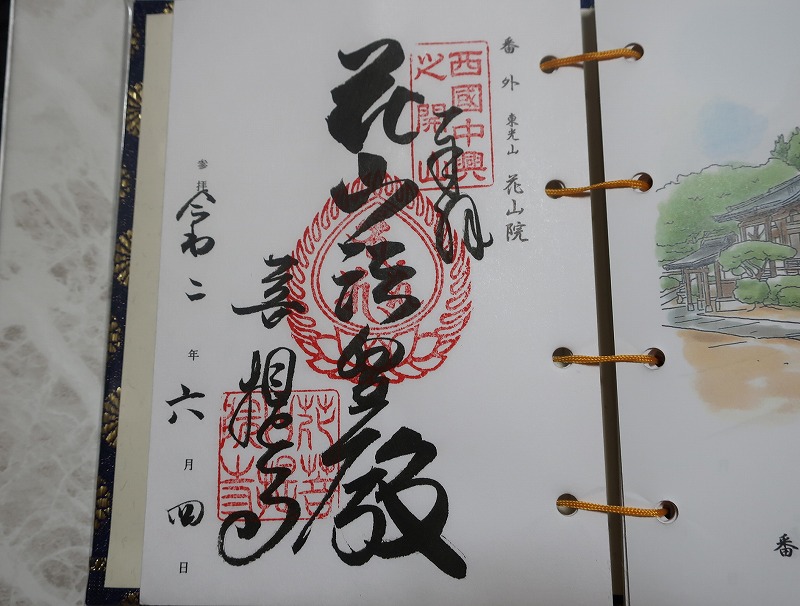 番外 東光山 花山院
西國中興
之開山
奉拝
花山法皇殿
菩提寺
参拝 令和二年六月四日
番